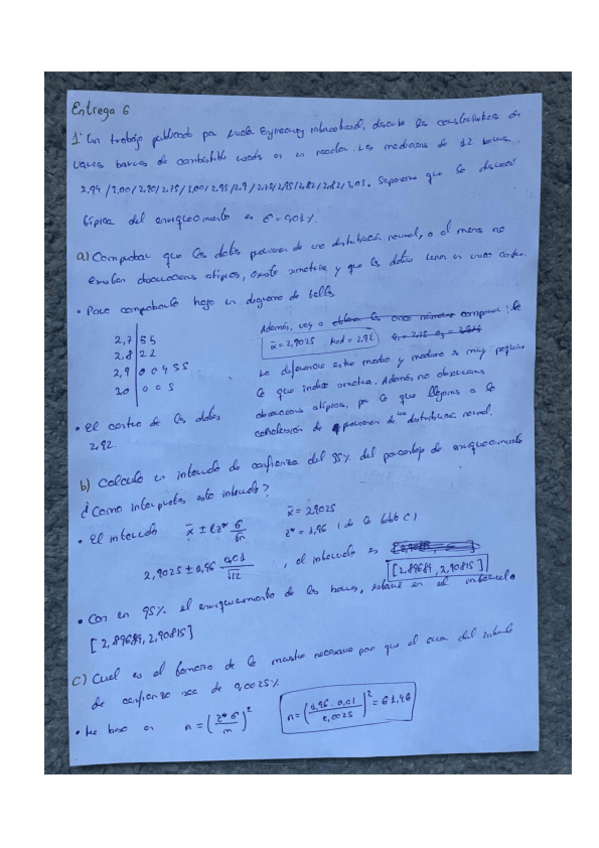 Entrega 6
1. En trabajo publicado por Nuclear Engineering International, describe las características de
varias barras de combustible usadas en un reactor. Las mediciones de 12 barras
2,94 / 3,00 / 2,90 / 2,75 / 3,00 / 2,95 / 2,9 / 2,75 / 2,95 / 2,82 / 2,82 / 3,05. Suponemos que la desviación
típica del enriquecimiento es σ = 0,01%.
a) Comprobar que los datos provienen de una distribución normal, o al menos no
existen observaciones atípicas, existe simetría y que los datos tienen un único
• Para comprobarlo hago un diagrama de tallos.
2,7 | 5 5
2,8 | 2 2
2,9 | 0 0 4 5 5
3,0 | 0 0 5
• El centro de los datos
2,92.
Además, voy a comparar la
x̄ = 2,9025 Med = 2,92
La diferencia entre media y mediana es muy pequeña
lo que indica simetría. Además no observamos
observaciones atípicas, por lo que llegamos a la
conclusión de q provienen de una distribución normal.
b) Calcula un intervalo de confianza del 95% del porcentaje de enriquecimiento
¿Como interpretas este intervalo?
• El intervalo x̄ ± z* σ/√n
x̄ = 2,9025
z* = 1,96 (de la tabla C)
2,9025 ± 1,96 0,01/√12 , el intervalo es
[2,89684, 2,90815]
• Con un 95% el enriquecimiento de las barras, estará en el intervalo
[2,89684, 2,90815]
c) Cual es el tamaño de la muestra necesario para que el error del intervalo
de confianza sea de 0,0025%
• Me baso en n = (z* σ/m)²
n = (1,96 · 0,01 / 0,0025)² = 61,46